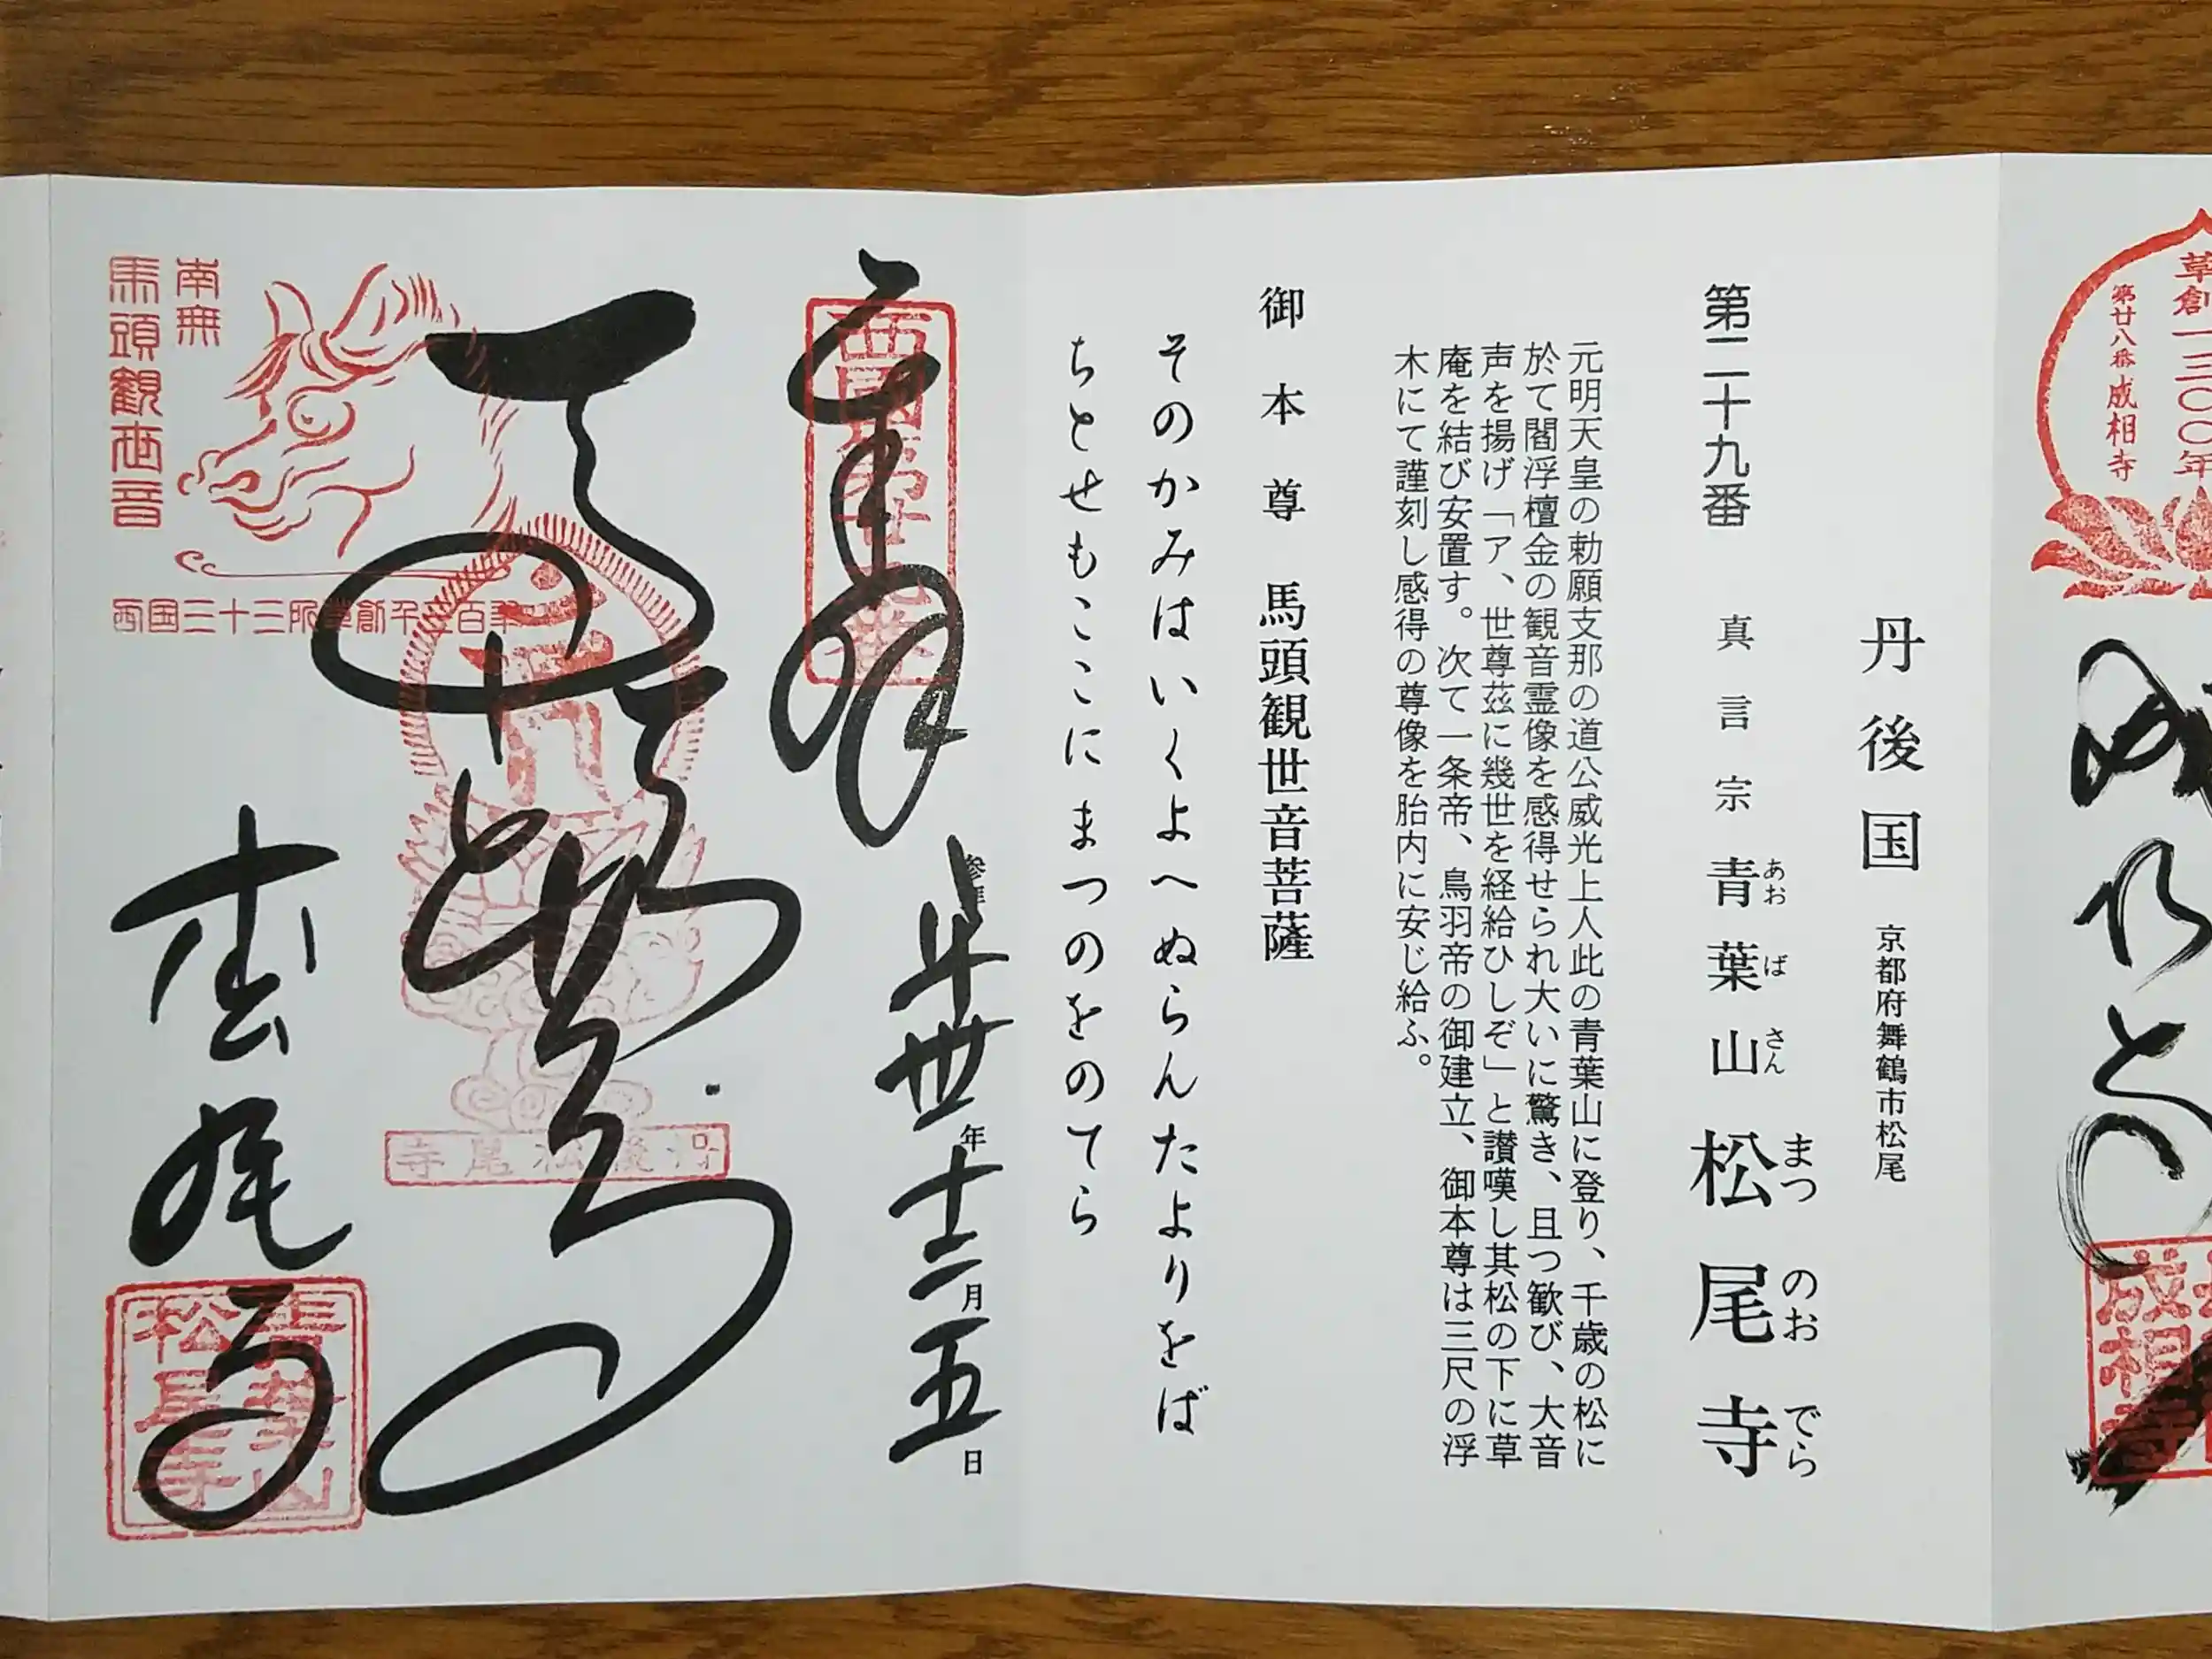 草創一三〇〇年
第廿八番 成相寺
成相寺
丹後国 京都府舞鶴市松尾
第二十九番 真言宗 青葉山 松尾寺
あおばさん まつのおでら
元明天皇の勅願支那の道公威光上人此の青葉山に登り、千歳の松に
於て閻浮檀金の観音霊像を感得せられ大いに驚き、且つ歓び、大音
声を揚げ「ア、世尊茲に幾世を経給ひしぞ」と讃嘆し其松の下に草
庵を結び安置す。次て一条帝、鳥羽帝の御建立、御本尊は三尺の浮
木にて謹刻し感得の尊像を胎内に安じ給ふ。
御本尊 馬頭観世音菩薩
そのかみはいくよへぬらんたよりをば
ちとせもここにまつのをのてら
奉拝
西國第廿九番
参拝 平成卅年十二月五日
南無
馬頭観世音
西国三十三所草創千三百年
丹後松尾寺
松尾寺
青葉山
松尾寺